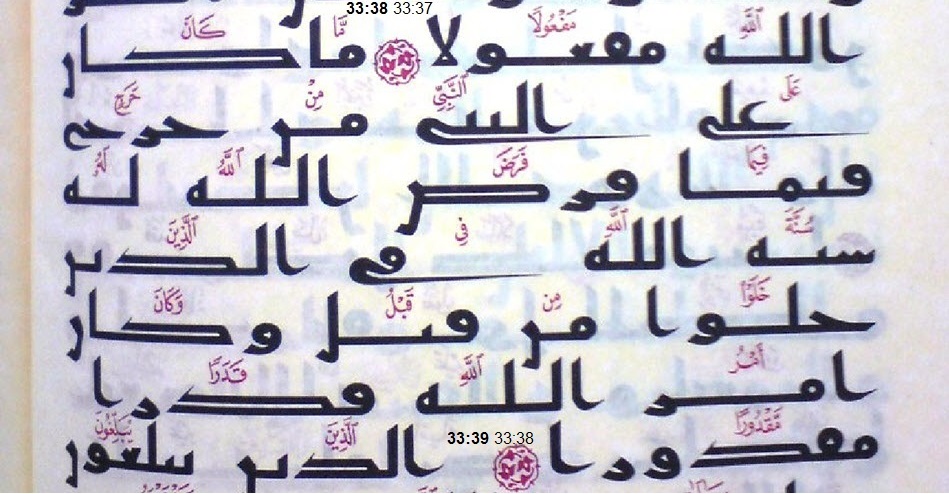 33:38 33:37
ٱللَّهِ مَفْعُولًا مَّا كَانَ
الله مفعولا ما كان
عَلَى ٱلنَّبِىِّ مِنْ حَرَجٍ
على النبى من حرج
فِيمَا فَرَضَ ٱللَّهُ لَهُۥ
فيما فرض الله له
سُنَّةَ ٱللَّهِ فِى ٱلَّذِينَ
سنه الله فى الذين
خَلَوْا۟ مِن قَبْلُ وَكَانَ
خلوا من قبل وكان
أَمْرُ ٱللَّهِ قَدَرًا
امر الله قدرا
مَّقْدُورًا ٱلَّذِينَ يُبَلِّغُونَ
33:39 33:38
مقدورا الذين يبلغون